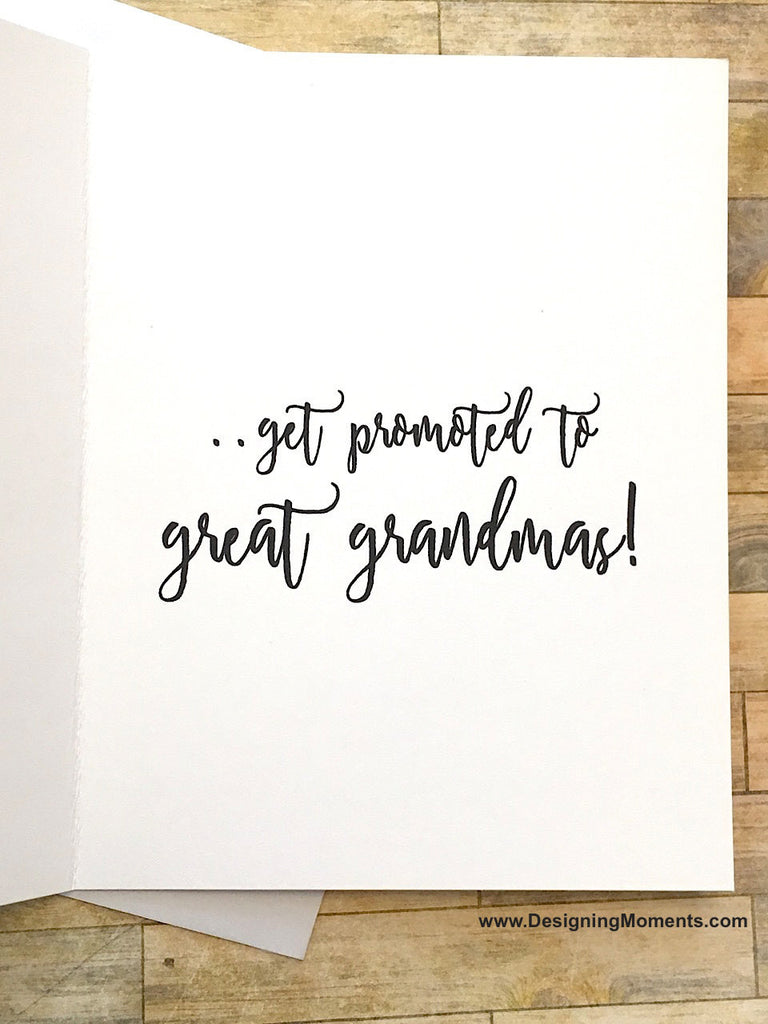 ..get promoted to
great grandmas!
www.DesigningMoments.com